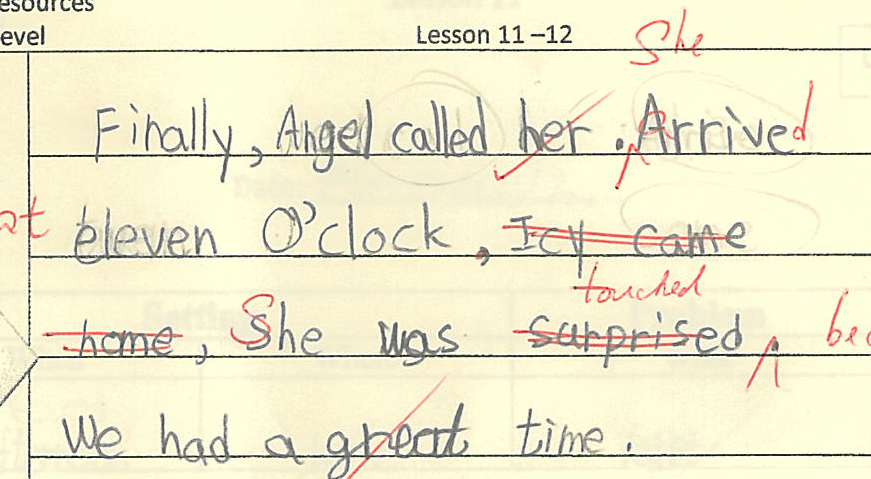 esources
evel Lesson 11 –12
She
Finally, Angel called her . Arrived
at eleven O'clock , Icy came
touched
home, She was surprised bec
We had a great time .